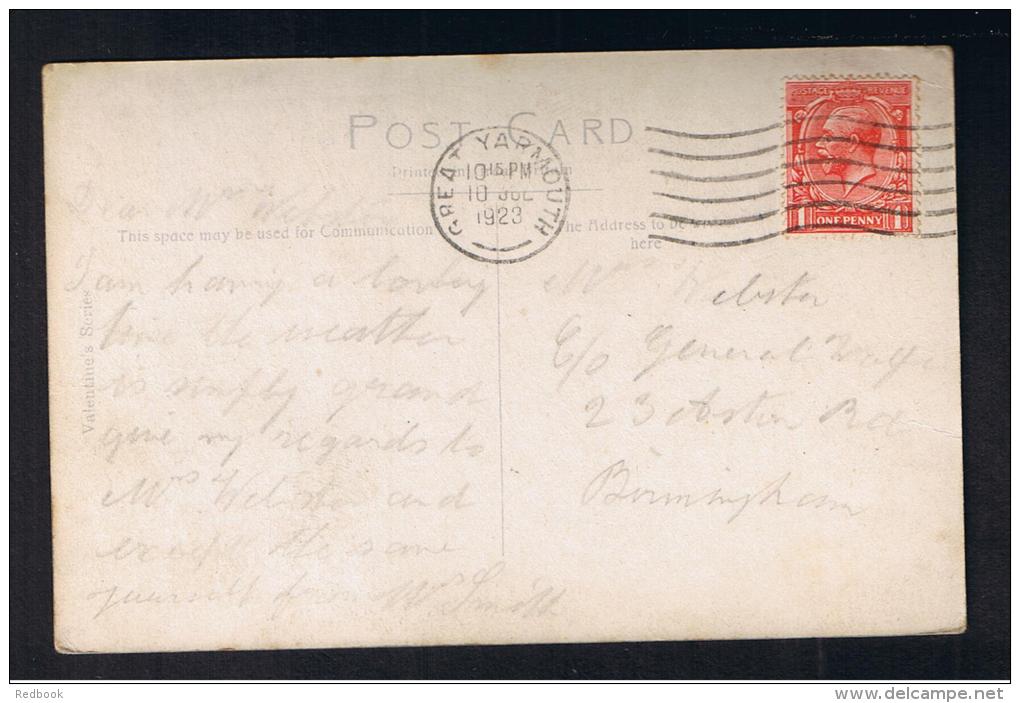 POST CARD
Printed in Great Britain
GREAT YARMOUTH
10 15 PM
10 JUL
1923
POSTAGE REVENUE
1 ONE PENNY 1
This space may be used for Communication
The Address to be
here
Valentine's Series
Dear Mr Webster
I am having a lovely
time the weather
is simply grand
give my regards to
Mrs Webster and
except the same
yourself from Mrs Smith
Mr Webster
C/o General Wolfe
23 Aston Rd
Birmingham
Redbook
www.delcampe.net